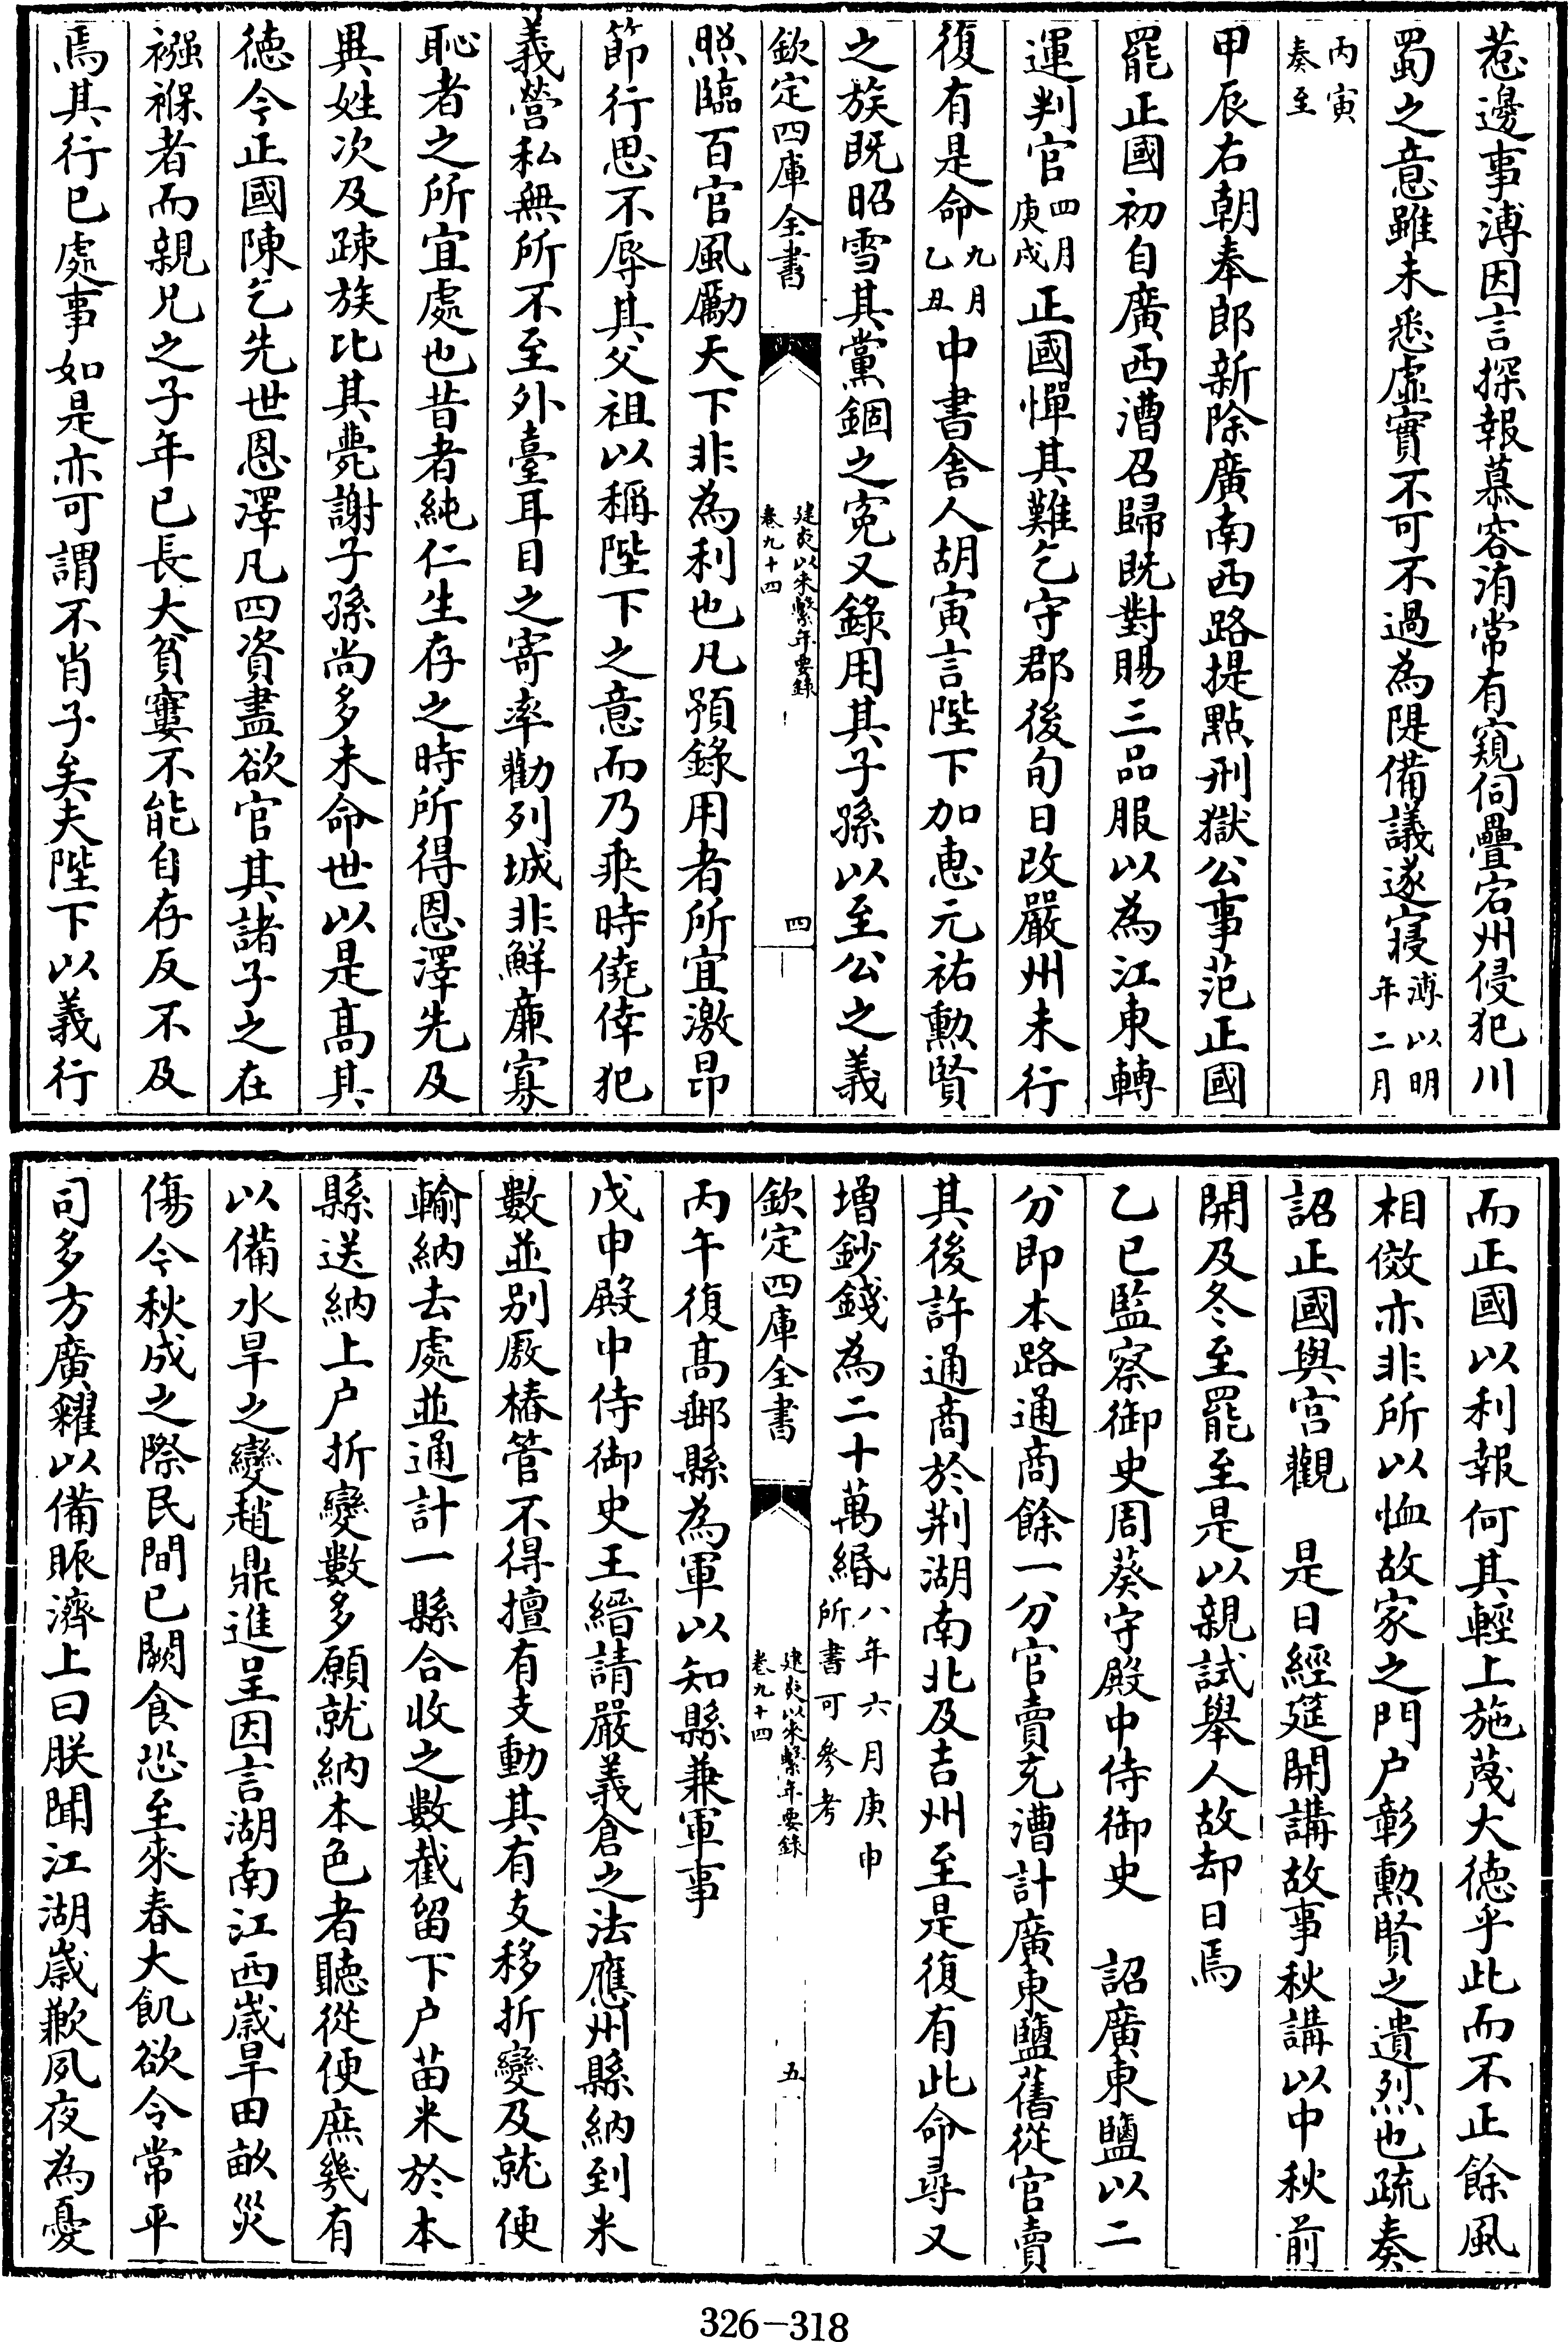 惹邊事溥因言探報慕容洧常有窺伺疊宕州侵犯川
蜀之意雖未悉虛實不可不過為隄備議遂寢溥以明年二月
丙寅奏至
甲辰右朝奉郎新除廣南西路提點刑獄公事范正國
罷正國初自廣西漕召歸既對賜三品服以為江東轉
運判官四月庚戌正國憚其難乞守郡後旬日改嚴州未行
復有是命九月乙丑中書舍人胡寅言陛下加惠元祐勳賢
之族既昭雪其黨錮之冤又錄用其子孫以至公之義
欽定四庫全書
建炎以來繫年要錄
卷九十四
四
照臨百官風勵天下非為利也凡預錄用者所宜激昂
節行思不辱其父祖以稱陛下之意而乃乘時僥倖犯
義營私無所不至外臺耳目之寄率勸列城非鮮廉寡
恥者之所宜處也昔者純仁生存之時所得恩澤先及
異姓次及疎族比其薨謝子孫尚多未命世以是高其
德今正國陳乞先世恩澤凡四資盡欲官其諸子之在
襁褓者而親兄之子年已長大貧窶不能自存反不及
焉其行已處事如是亦可謂不肖子矣夫陛下以義行
而正國以利報何其輕上施蔑大德乎此而不正餘風
相傚亦非所以恤故家之門户彰勲賢之遺烈也疏奏
詔正國與宫觀　是日經筵開講故事秋講以中秋前
開及冬至罷至是以親試舉人故却日焉
乙巳監察御史周葵守殿中侍御史　詔廣東鹽以二
分即本路通商餘一分官賣充漕計廣東鹽舊從官賣
其後許通商於荆湖南北及吉州至是復有此命尋又
增鈔錢為二十萬緡八年六月庚申所書可參考
欽定四庫全書
建炎以來繫年要錄
卷九十四
五
丙午復髙郵縣為軍以知縣兼軍事
戊申殿中侍御史王縉請嚴義倉之法應州縣納到米
數並別厫樁管不得擅有支動其有支移折變及就便
輸納去處並通計一縣合收之數截留下户苗米於本
縣送納上户折變數多願就納本色者聽從便庶幾有
以備水旱之變趙鼎進呈因言湖南江西歲旱田畝災
傷今秋成之際民間已闕食恐至來春大飢欲令常平
司多方廣糴以備賑濟上曰朕聞江湖歲歉夙夜為憂
326-318